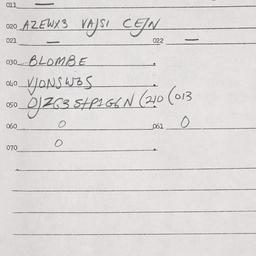 011 —
020 AZEWX3 VAJSI CEJN
021 — 022 —
030 BLOMBE
040 VJONSW3S
050 OJZG3 StP1GGN (210 (013
060 0 061 0
070 0